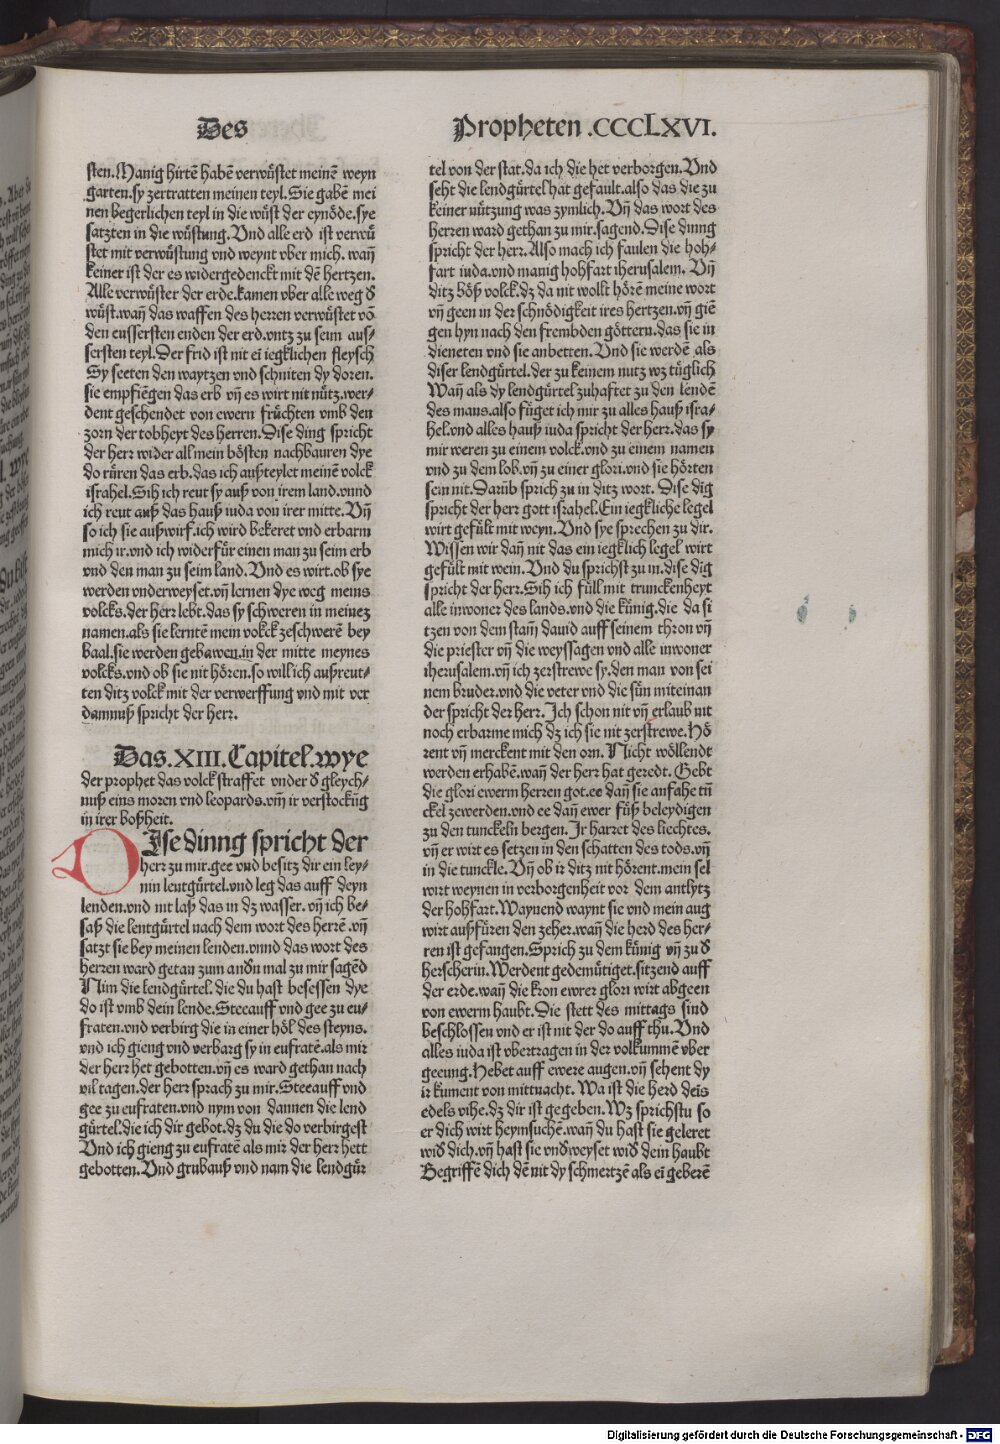 Des
Propheten .CCCLXVI.
sten. Manig hirtē habē verwüstet meinē weyn
garten. sy zertratten meinen teyl. Sie gabē mei
nen begerlichen teyl in die wüst der eynöde. sye
satzten in die wüstung. Vnd alle erd ist verwü
stet mit verwüstung vnd weynt vber mich. wañ
keiner ist der es widergedenckt mit dē hertzen.
Alle verwüster der erde. kamen vber alle weg d̄
wüst. wañ das waffen des herren verwüstet vō
den eussersten enden der erd. vntz zu seim aus⸗
sersten teyl. Der frid ist nit eī iegklichen fleysch
Sy seeten den waytzen vnd schniten dy doren.
sie empfiēgen das erb vñ es wirt nit nütz. wer⸗
dent geschendet von ewern früchten vmb den
zorn der tobheyt des herren. Dise ding spricht
der herr wider all mein bösten nachbauren dye
do rüren das erb. das ich außteylet meinē volck
israhel. Sih ich reut sy auß von irem land. vnnd
ich reut auß das hauß iuda von irer mitte. Vñ
so ich sie außwirf. ich wird bekeret vnd erbarm
mich ir. vnd ich widerfür einen man zu seim erb
vnd den man zu seim land. Vnd es wirt. ob sye
werden vnderweyset. vñ lernen dye weg meins
volcks. der herr lebt. das sy schweren in meinez
namen. als sie lerntē mein volck zeschwerē bey
baal. sie werden gebawen. in der mitte meynes
volcks. vnd ob sie nit hören. so will ich außreut⸗
ten ditz volck mit der verwerffung vnd mit ver
damnuß spricht der herr.
Das .XIII. Capitel. wye
der prophet das volck straffet vnder d̄ gleych⸗
nuß eins moren vnd leopards. vñ ir verstockūg
in irer boßheit.
DIse dinng spricht der
herr zu mir. gee vnd besitz dir ein ley⸗
nin lentgürtel. vnd leg das auff deyn
lenden. vnd nit laß das in dz wasser. vñ ich be⸗
saß die lentgürtel nach dem wort des herrē. vñ
satzt sie bey meinen lenden. vnnd das wort des
herren ward getan zum andn̄ mal zu mir sagēd
Nim die lendgürtel. die du hast besessen dye
do ist vmb dein lende. Steeauff vnd gee zu eu⸗
fraten. vnd verbirg die in einer höl des steyns.
vnd ich gieng vnd verbarg sy in eufratē. als mir
der herr het gebotten. vñ es ward gethan nach
vil tagen. der herr sprach zu mir. Steeauff vnd
gee zu eufraten. vnd nym von dannen die lend
gürtel. die ich dir gebot. dz du die do verbirgest
Vnd ich gieng zu eufratē als mir der herr hett
gebotten. Vnd grubauß vnd nam die lendgür
tel von der stat. da ich die het verborgen. Vnd
seht die lendgürtel hat gefault. also das die zu
keiner nützung was zymlich. Vñ das wort des
herren ward gethan zu mir. sagend. Dise dinng
spricht der herr. Also mach ich faulen die hoh⸗
fart iuda. vnd manig hohfart iherusalem. Vñ
ditz böß volck. dz da nit wollt hörē meine wort
vñ geen in der schnödigkeit ires hertzen. vñ giē
gen hyn nach den frembden göttern. das sie in
dieneten vnd sie anbetten. Vnd sie werdē als
diser lendgürtel. der zu keinem nutz wz tüglich
Wañ als dy lendgürtel zuhaftet zu den lendē
des mans. also füget ich mir zu alles hauß isra⸗
hel. vnd alles hauß iuda spricht der herr. das sy
mir weren zu einem volck. vnd zu einem namen
vnd zu dem lob. vñ zu einer glori. vnd sie hörten
sein nit. Darūb sprich zu in ditz wort. Dise dīg
spricht der herr gott israhel. Ein iegkliche legel
wirt gefült mit weyn. Vnd sye sprechen zu dir.
Wissen wir dañ nit das ein iegklich legel wirt
gefült mit wein. Vnd du sprichst zu in. dise dīg
spricht der herr. Sih ich füll mit trunckenheyt
alle inwoner des lands. vnd die künig. die da si
tzen von dem stam̄ dauid auff seinem thron vñ
die priester vñ die weyssagen vnd alle inwoner
iherusalem. vñ ich zerstrewe sy. den man von sei
nem bruder. vnd die veter vnd die sün miteinan
der spricht der herr. Ich schon nit vñ erlaub nit
noch erbarme mich dz ich sie nit zerstrewe. Hö
rent vñ merckent mit den orn. Nicht wöllendt
werden erhabē. wañ der herr hat geredt. Gebt
die glori ewerm herren got. ee dañ sie anfahe tū
ckel zewerden. vnd ee dañ ewer füß beleydigen
zu den tunckeln̄ bergen. Ir harret des liechtes.
vñ er wirt es setzen in den schatten des tods. vñ
in die tunckle. Vñ ob ir ditz nit hörent. mein sel
wirt weynen in verborgenheit vor dem antlytz
der hohfart. Waynend waynt sie vnd mein aug
wirt außfüren den zeher. wañ die herd des her⸗
ren ist gefangen. Sprich zu dem künig vñ zu d̄
herscherin. Werdent gedemütiget. sitzend auff
der erde. wañ die kron ewrer glori wirt abgeen
von ewerm haubt. Die stett des mittags sind
beschlossen vnd er ist nit der do auff thu. Vnd
alles iuda ist vbertragen in der volkummē vber
geeung. Hebet auff ewere augen. vñ sehent dy
ir kument von mittnacht. Wa ist die herd deīs
edels vihe. dz dir ist gegeben. Wz sprichstu so
er dich wirt heymsuchē. wañ du hast sie geleret
wid̄ dich. vñ hast sie vnd̄weyset wid̄ dein haubt
Begriffē dich dē nit dy schmertzē als eī geberē
Digitalisierung gefördert durch die Deutsche Forschungsgemeinschaft - DFG